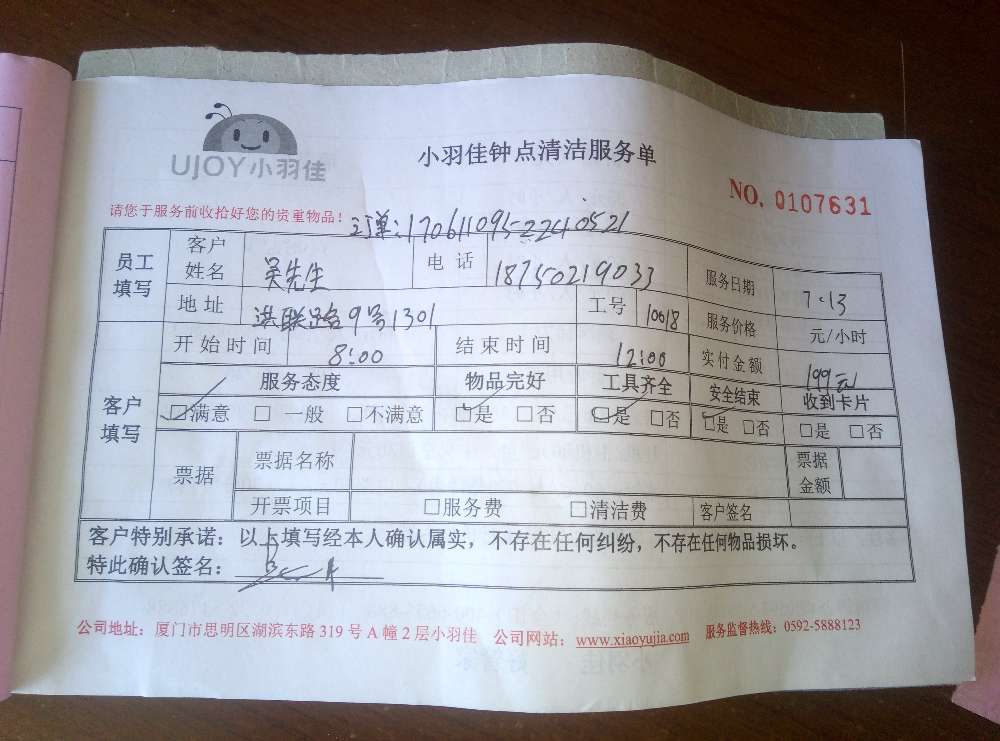 UJOY小羽佳
小羽佳钟点清洁服务单
NO. 0107631
请您于服务前收拾好您的贵重物品！
订单:1706110952240521
员工填写 客户姓名 吴先生 电话 18750219033 服务日期 7.13
地址 洪联路9号1301 工号 10018 服务价格 元/小时
客户填写 开始时间 8:00 结束时间 12:00 实付金额 199元
服务态度 物品完好 工具齐全 安全结束 收到卡片
☑满意 □一般 □不满意 ☑是 □否 ☑是 □否 ☑是 □否 □是 □否
票据 票据名称 票据金额
开票项目 □服务费 □清洁费 客户签名
客户特别承诺：以上填写经本人确认属实，不存在任何纠纷，不存在任何物品损坏。
特此确认签名：
公司地址：厦门市思明区湖滨东路319号A幢2层小羽佳 公司网站：www.xiaoyujia.com 服务监督热线：0592-5888123